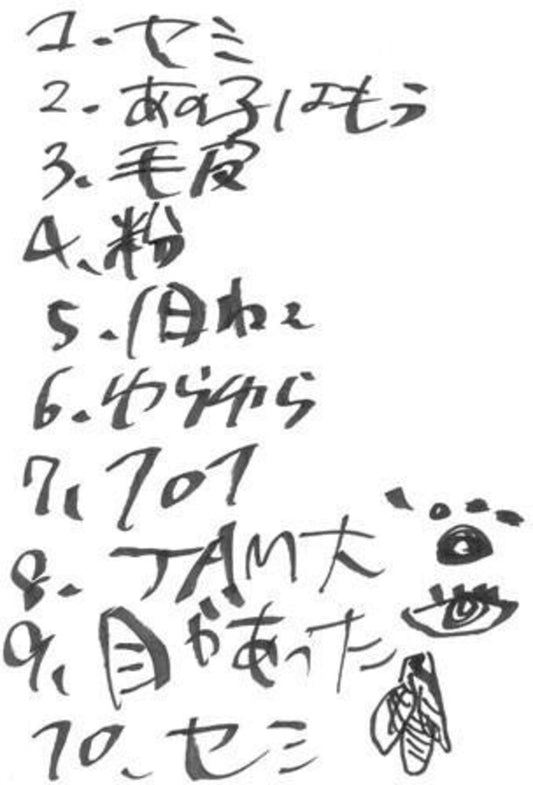 1.セミ
2.あの子はもう
3.毛皮
4.粉
5.1日ねえ
6.ゆらゆら
7.101
8.JAM大
9.目があった
10.セミ